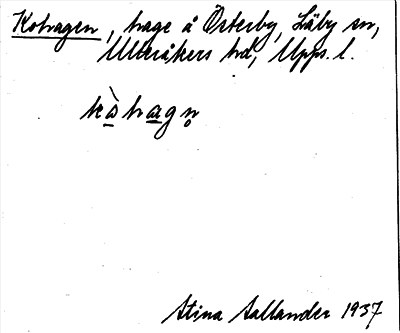 Kohagen, hage å Österby, Läby sn,
Ulleråkers hd, Upps. l.
kὰhagn̥
Stina Aallander 1937